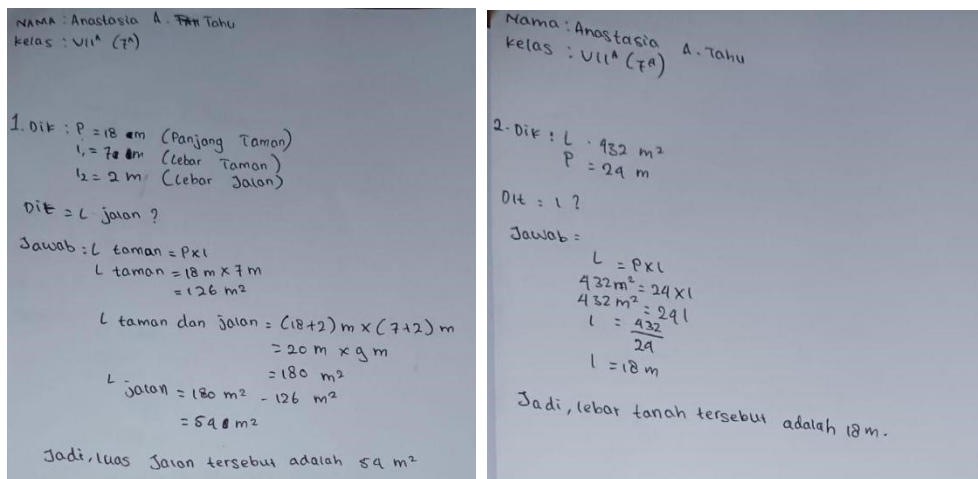 NAMA : Anastasia A. Tahu
Kelas : VII^A (7^A)
1. Dik : P = 18 m (Panjang Taman)
l₁ = 7 m (Lebar Taman)
l₂ = 2 m (Lebar Jalan)
Dit = L jalan ?
Jawab : L taman = P x l
L taman = 18 m x 7 m
= 126 m²
L taman dan jalan = (18+2) m x (7+2) m
= 20 m x 9 m
= 180 m²
L jalan = 180 m² - 126 m²
= 54 m²
Jadi, luas Jalan tersebut adalah 54 m²
Nama : Anastasia A. Tahu
Kelas : VII^A (7^A)
2. Dik : L . 432 m²
P = 24 m
Dit : l ?
Jawab =
L = P x l
432 m² = 24 x l
432 m² = 24 l
l = 432
24
l = 18 m
Jadi, lebar tanah tersebut adalah 18 m.